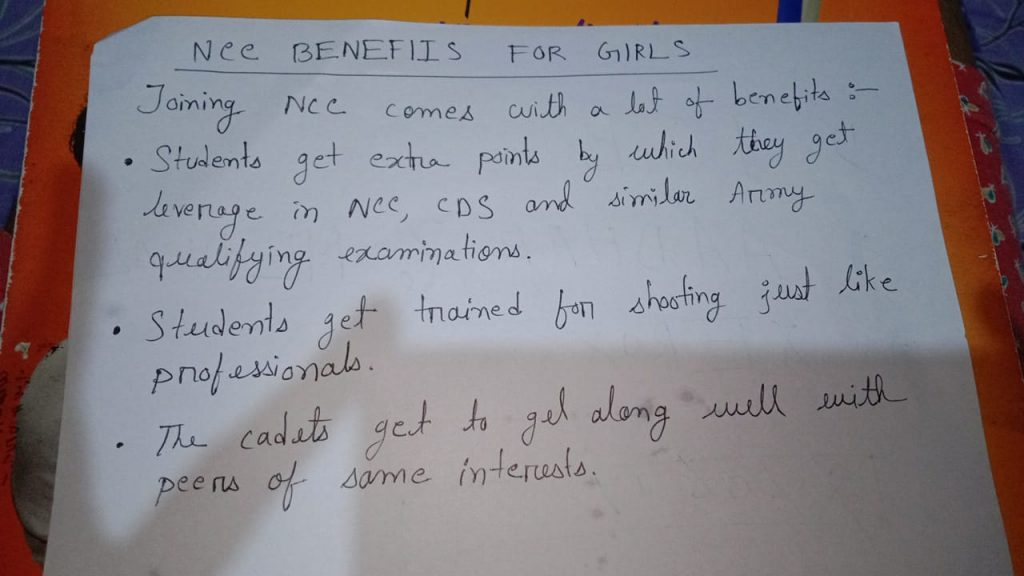 NCC BENEFITS FOR GIRLS
Joining NCC comes with a lot of benefits :-
• Students get extra points by which they get
leverage in NCC, CDS and similar Army
qualifying examinations.
• Students get trained for shooting just like
professionals.
• The cadets get to gel along well with
peers of same interests.